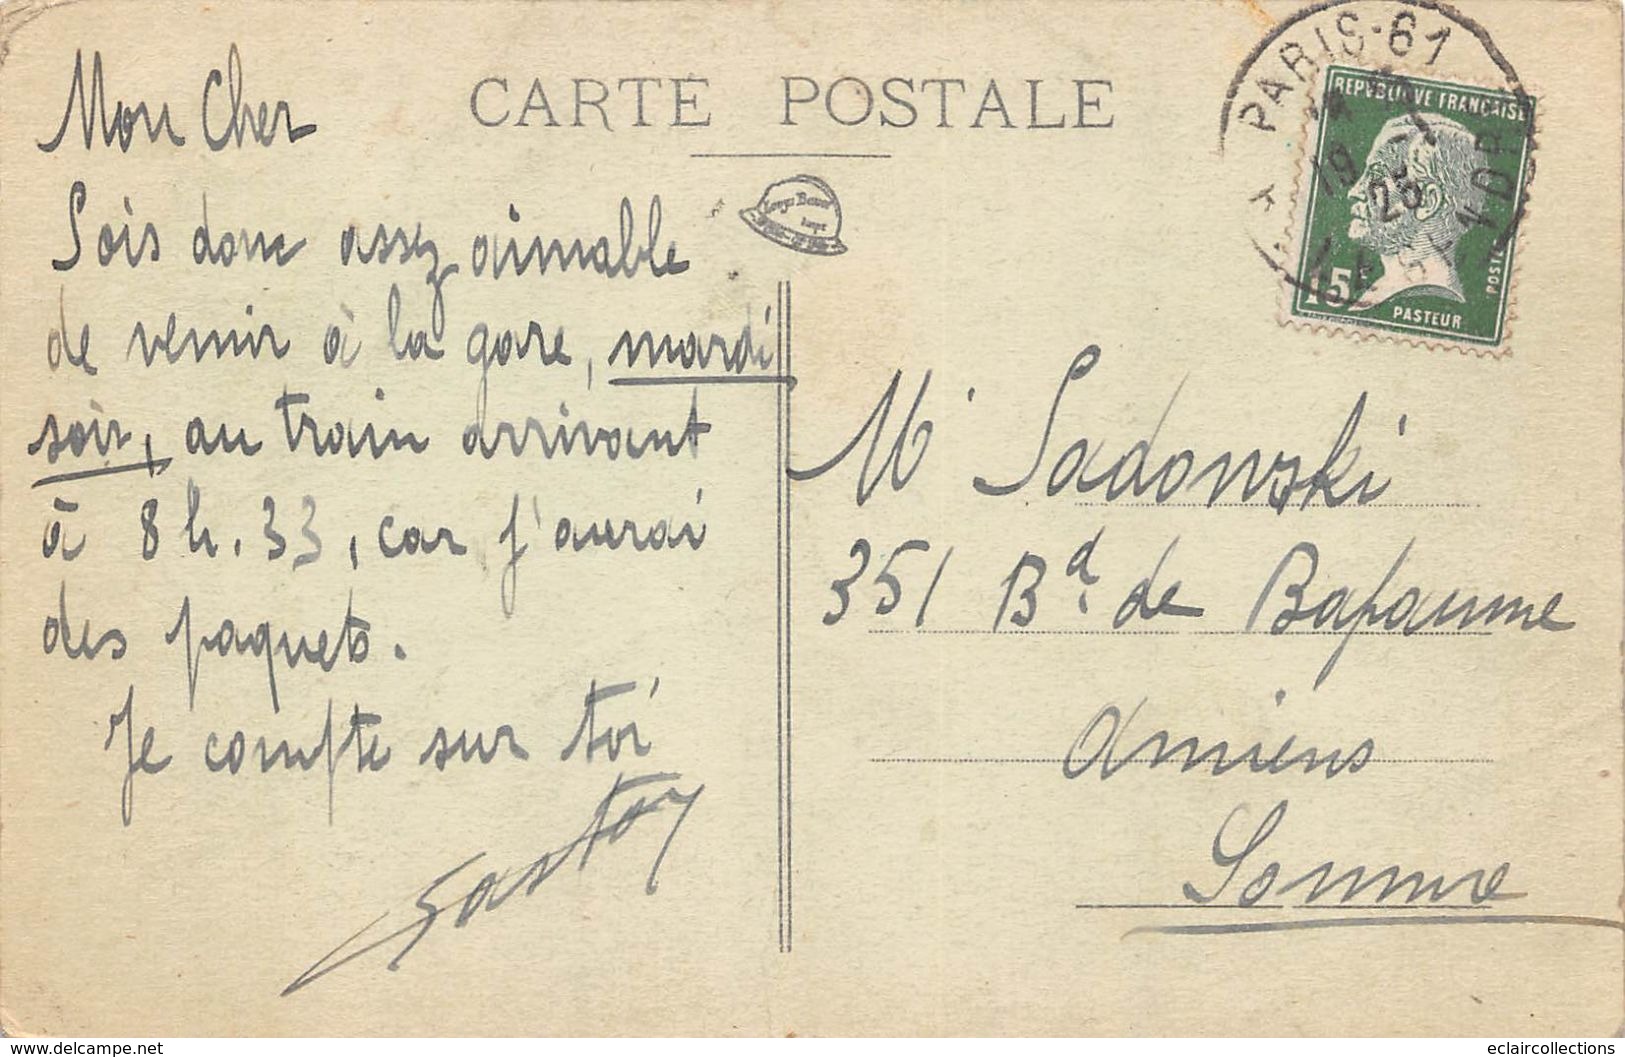 CARTE POSTALE
Mon Cher
Sois donc assez aimable
de venir à la gare, mardi
soir, au train arrivant
à 8 h. 33, car j'aurai
des paquets.
Je compte sur toi
Gaston
PARIS-61
19
25
REPUBLIQUE FRANÇAISE
15
POSTES
PASTEUR
Mr Sadowski
351 Bd. de Bapaume
Amiens
Somme
delcampe.net
eclaircollections